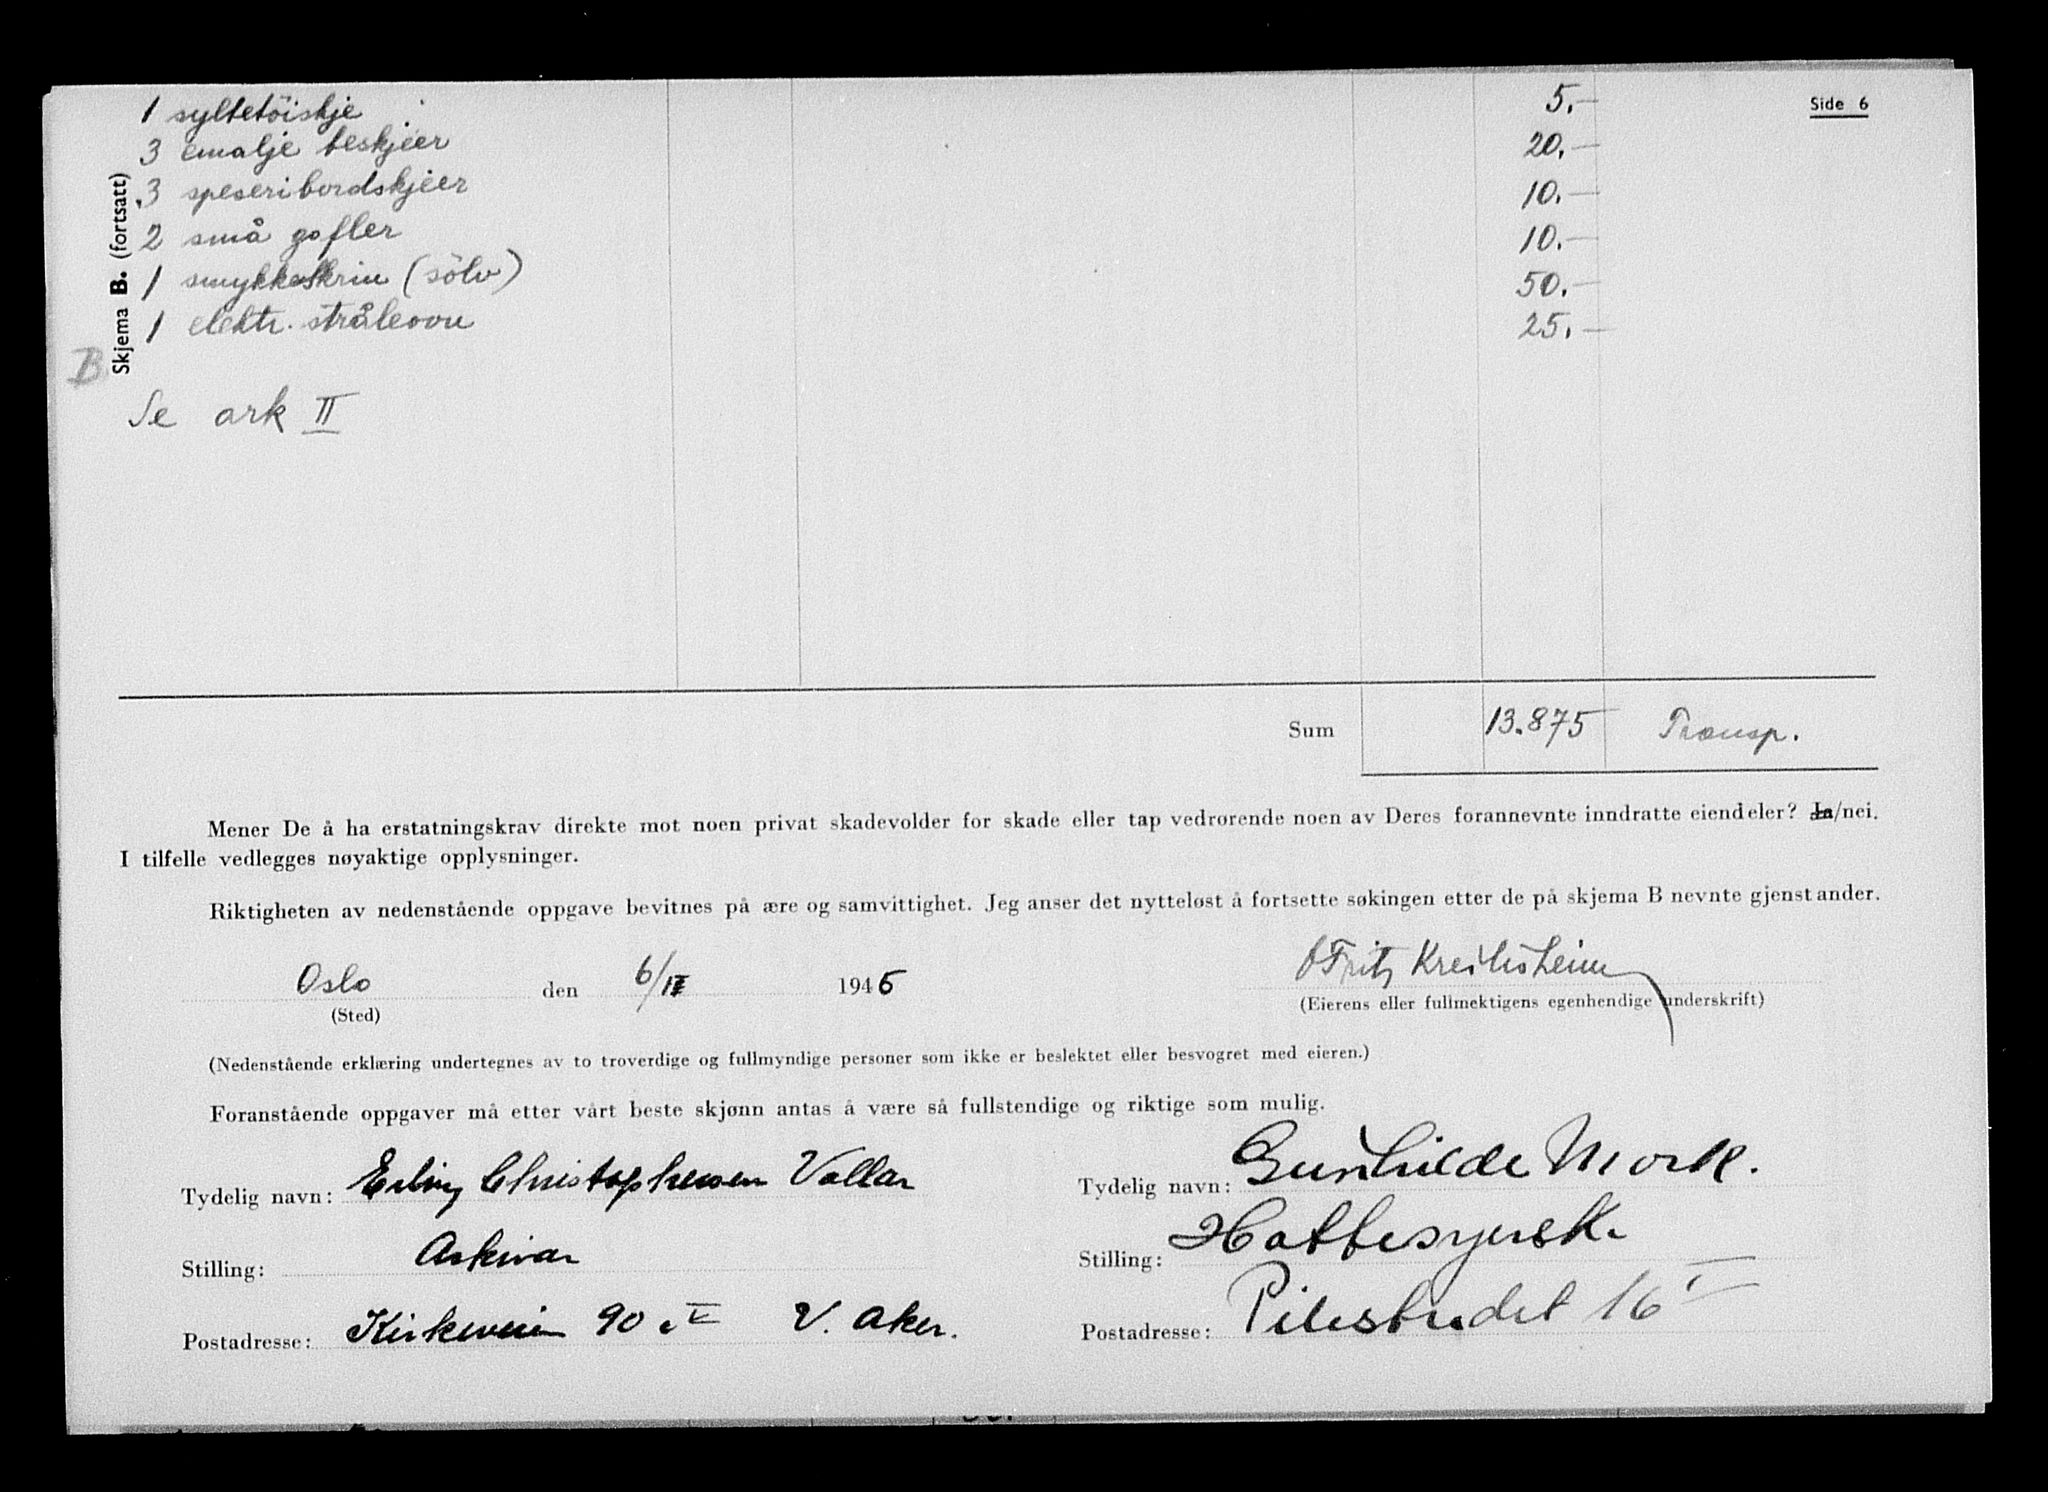 Side 6
Skjema B. (fortsatt)
B
1 syltetöiskje 5.-
3 emalje teskjeer 20.-
3 speseribordskjeer 10.-
2 små gafler 10.-
1 smykkeskrin (sölv) 50.-
1 elektr. stråleovn 25.-
Se ark II
Sum 13.875 Transp.
Mener De å ha erstatningskrav direkte mot noen privat skadevolder for skade eller tap vedrørende noen av Deres forannevnte inndratte eiendeler? Ja/nei.
I tilfelle vedlegges nøyaktige opplysninger.
Riktigheten av nedenstående oppgave bevitnes på ære og samvittighet. Jeg anser det nytteløst å fortsette søkingen etter de på skjema B nevnte gjenstander.
Oslo den 6/ 1946 Fritz
(Sted) (Eierens eller fullmektigens egenhendige underskrift)
(Nedenstående erklæring undertegnes av to troverdige og fullmyndige personer som ikke er beslektet eller besvogret med eieren.)
Foranstående oppgaver må etter vårt beste skjønn antas å være så fullstendige og riktige som mulig.
Tydelig navn: Erling Christophersen Vollan Tydelig navn: Gunhilde Mork.
Stilling: Arkivar Stilling: Hattesyersk.
Postadresse: Kirkeveien 90 V. Aker. Postadresse: Pilestredet 16 I